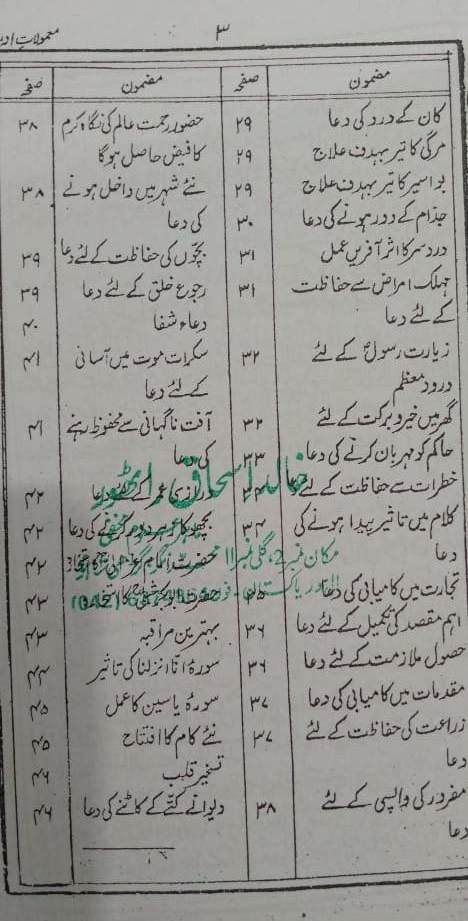 ۳
معمولات
مضمون صفحہ
کان کے درد کی دعا ۲۹
مرگی کا تیر بہدف علاج ۲۹
بواسیر کا تیر بہدف علاج ۲۹
جذام کے دور ہونے کی دعا ۳۰
درد سر کا اثر آفریں عمل ۳۱
مہلک امراض سے حفاظت ۳۱
کے لئے دعا
زیارت رسولؐ کے لئے ۳۲
درود معظم
گھر میں خیر و برکت کے لئے ۳۲
حاکم کو مہربان کرنے کی دعا ۳۳
خطرات سے حفاظت کے لئے دعا
کلام میں تاثیر پیدا ہونے کی ۳۴
دعا
تجارت میں کامیابی کی دعا ۳۵
اہم مقصد کی تکمیل کے لئے دعا ۳۶
حصول ملازمت کے لئے دعا ۳۶
مقدمات میں کامیابی کی دعا ۳۷
زراعت کی حفاظت کے لئے ۳۷
دعا
مفرور کی واپسی کے لئے ۳۸
دعا
مضمون صفحہ
حضور رحمت عالم کی نگاہ کرم ۳۸
کا فیض حاصل ہوگا
نئے شہر میں داخل ہونے ۳۸
کی دعا
بچوں کی حفاظت کے لئے دعا ۳۹
رجوع خلق کے لئے دعا ۳۹
دعاء شفا ۴۰
سکرات موت میں آسانی ۴۱
کے لئے دعا
آفت ناگہانی سے محفوظ رہنے ۴۱
کی دعا
درازی عمر کے لئے دعا ۴۲
بچھو کا زہر دور کرنے کی دعا ۴۲
حضرت امام ۴۲
حضرت ۴۳
بہترین مراقبہ ۴۳
سورۂ انا انزلنا کی تاثیر ۴۴
سورۂ یاسین کا عمل ۴۵
نئے کام کا افتتاح ۴۵
تسخیر قلب ۴۶
دیوانے کتے کے کاٹنے کی دعا ۴۶
خالد اسحاق راٹھور
مکان نمبر 2، گلی نمبر 11
لاہور پاکستان